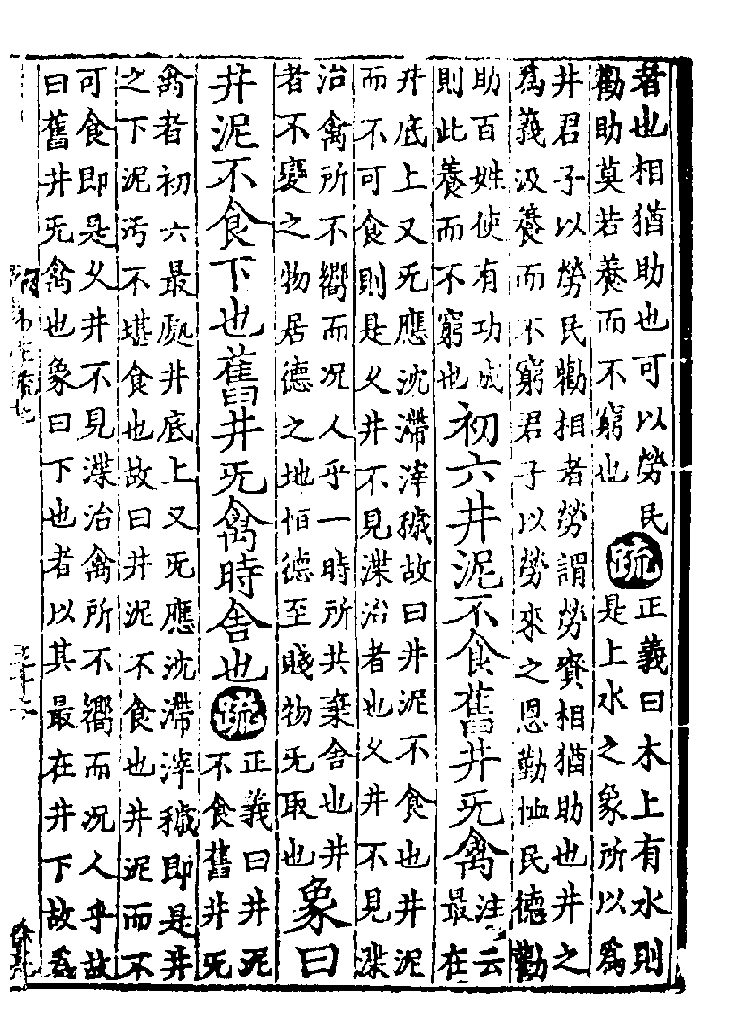 者也相猶助也可以勞民
勸助莫若養而不窮也
疏
正義曰木上有水則
是上水之象所以為
井君子以勞民勸相者勞謂勞賚相猶助也井之
為義汲養而不窮君子以勞來之恩勤恤民德勸
助百姓使有功成
則此養而不窮也
初六井泥不食舊井无禽
注云
最在
井底上又无應沈滯滓穢故曰井泥不食也井泥
而不可食則是久井不見渫治者也久井不見渫
治禽所不嚮而况人乎一時所共棄舍也井
者不變之物居德之地恒德至賤物无取也
象曰
井泥不食下也舊井无禽時舍也
疏
正義曰井泥
不食舊井无
禽者初六最處井底上又无應沈滯滓穢即是井
之下泥汚不堪食也故曰井泥不食也井泥而不
可食即是久井不見渫治禽所不嚮而况人乎故
曰舊井无禽也象曰下也者以其最在井下故為